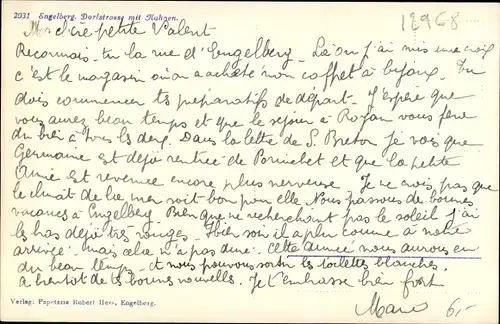 2031 Engelberg. Dorfstrasse mit Hahnen.
12968
Ma chère petite Valent
Reconnais-tu la rue d'Engelberg. Là où j'ai mis une croix
c'est le magasin où on a acheté mon coffret à bijoux. Tu
dois commencer tes préparatifs de départ. J'espère que
vous aurez beau temps et que le séjour à Royan vous fera
du bien à tous les deux. Dans la lettre de S. Breton je vois que
Germaine est déjà rentrée de et que la petite
Annie est revenue encore plus nerveuse. Je ne crois pas que
le climat de la mer soit bon pour elle. Nous passons de bonnes
vacances à Engelberg. Bien que ne recherchant pas le soleil j'ai
les bras déjà très rouges. Hier soir il a plu comme à notre
arrivée. mais cela n'a pas duré. Cette année nous aurons eu
du beau temps et nous pouvons sortir les toilettes blanches.
A bientôt de tes bonnes nouvelles. Je t'embrasse bien fort
Marc
6,-
Verlag: Papeterie Robert Hess, Engelberg.